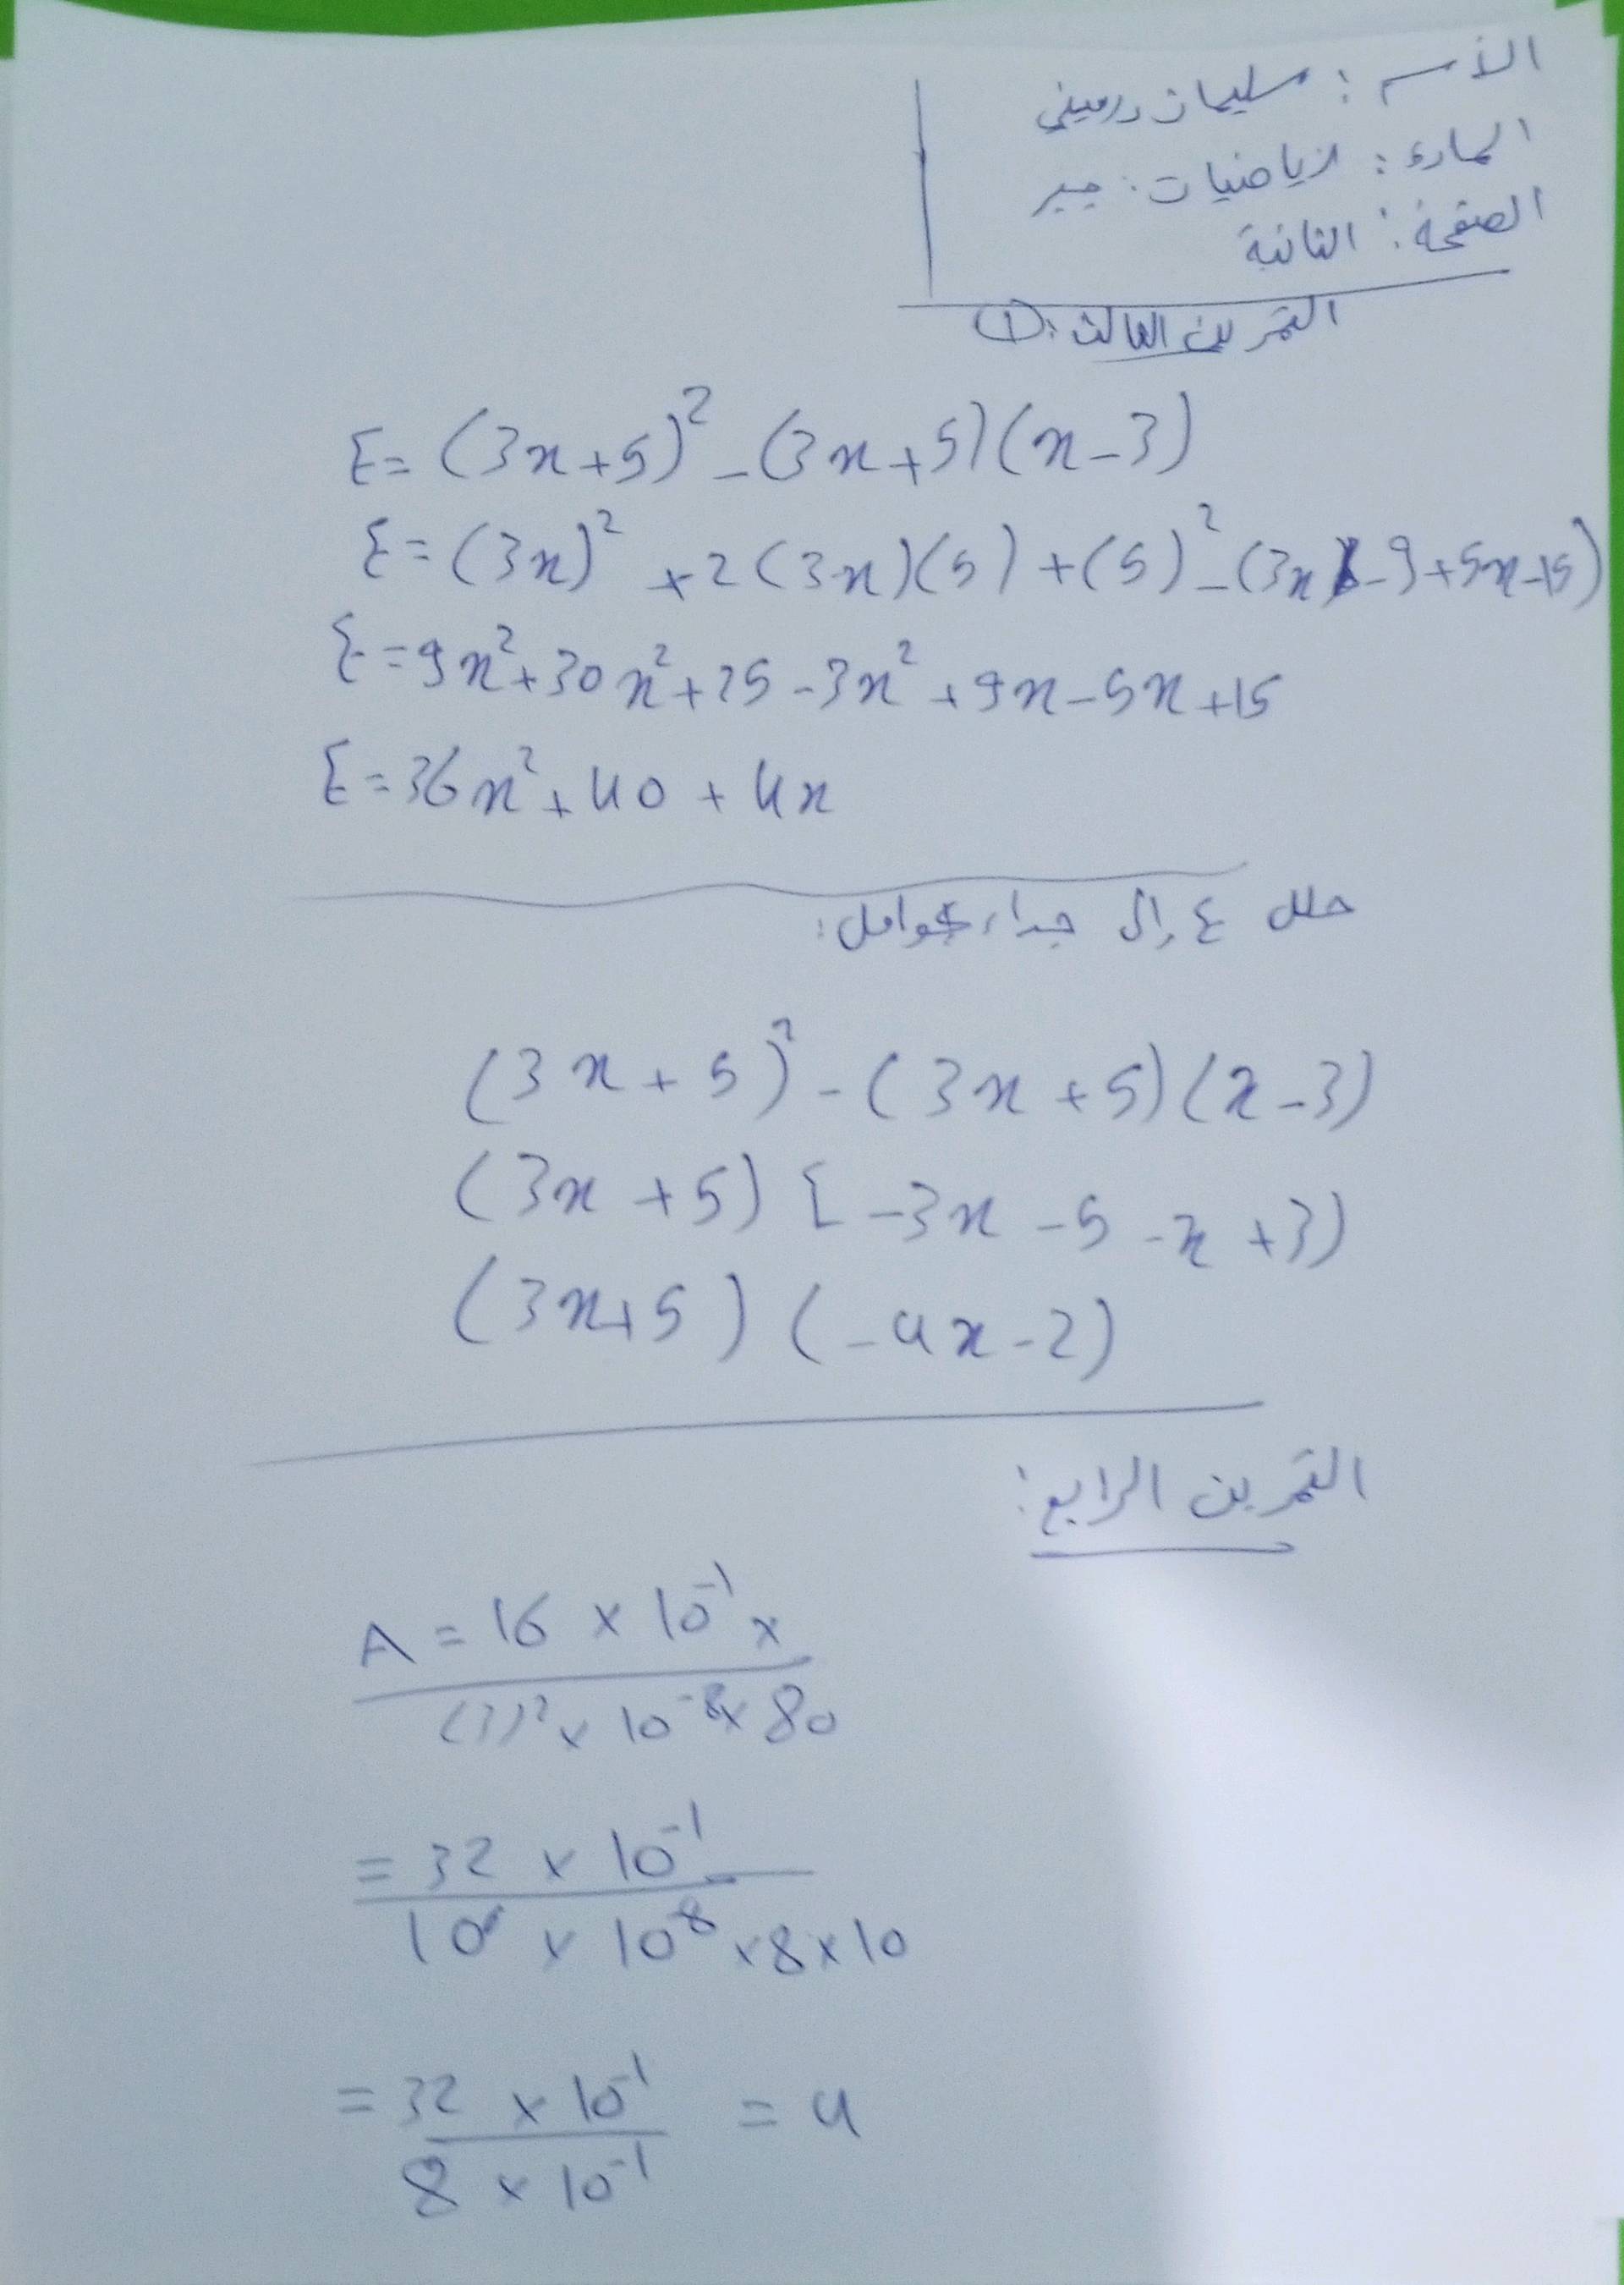 الأسم : سليمان درميني
المادة : الرياضيات : جبر
الصفحة : الثانية
التمرين الثالث : ①
E = (3x+5)² - (3x+5)(x-3)
E = (3x)² + 2(3x)(5) + (5)² - (3x - 9 + 5x - 15)
E = 9x² + 30x² + 25 - 3x² + 9x - 5x + 15
E = 36x² + 40 + 4x
حلل E إلى جداء عوامل :
(3x + 5)² - (3x + 5)(x - 3)
(3x + 5) [-3x - 5 - x + 3)
(3x+5) (-4x - 2)
التمرين الرابع :
A = 16 × 10⁻¹ ×
× 10⁻⁸ × 80
= 32 × 10⁻¹
10 × 10⁻⁸ × 8 × 10
= 32 × 10⁻¹ = 4
8 × 10⁻¹